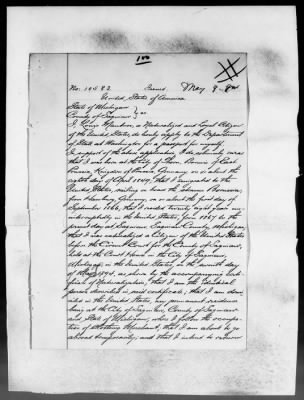 No. 10482 Issued May 9 - 
United States of America
State of Michigan
County of Saginaw
I, Louis , a Naturalized and Loyal Citizen
of the United States, do hereby apply to the Department
of State at Washington for a passport for myself.
In support of the above application, I do solemnly swear
that I was born at the City of , Province of East
Prussia, Kingdom of Prussia, Germany, on or about the
day of April 1849, that I emigrated to the
United States, sailing on board the Steamer ,
from Hamburg, Germany, on or about the first day of
September 1866, that I resided twenty eight years un-
interruptedly in the United States, from 1867 to the
present day at Saginaw, Saginaw County, Michigan,
that I was naturalized a Citizen of the United States
before the Circuit Court for the County of Saginaw,
held at the Court House in the City of Saginaw,
Michigan, in the United States, on the day
of 189, as shown by the accompanying Certi-
ficate of Naturalization, that I am the identical
person described in said certificate, that I am domi-
ciled in the United States, my permanent residence
being at the City of Saginaw, County of Saginaw
and State of Michigan, where I follow the occupa-
tion of Clothing Merchant, that I am about to go
abroad temporarily, and that I intend to return